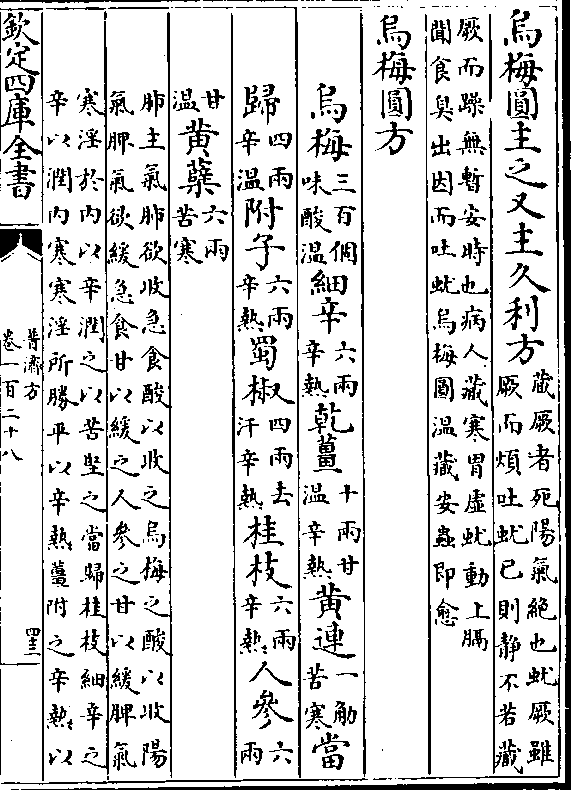 烏梅圓主之又主久利方藏厥者死陽氣絶也蚘厥雖
厥而煩吐蚘已則静不若藏
厥而躁無暫安時也病人藏寒胃虚蚘動上膈
聞食臭出因而吐蚘烏梅圓温藏安蟲即愈
烏梅圓方
烏梅三百個
味酸温細辛六兩
辛熱乾薑十兩甘
温辛熱黄連一觔
苦寒當
歸四兩
辛温附子六兩
辛熱蜀椒四兩去
汗辛熱桂枝六兩
辛熱人參六
兩
甘
温黄蘗六兩
苦寒
肺主氣肺欲收急食酸以收之烏梅之酸以收陽
氣脾氣欲緩急食甘以緩之人參之甘以緩脾氣
寒淫於内以辛潤之以苦堅之當歸桂枝細辛之
辛以潤内寒寒淫所勝平以辛熱薑附之辛熱以
欽定四庫全書
普濟方
卷一百二十八
四三